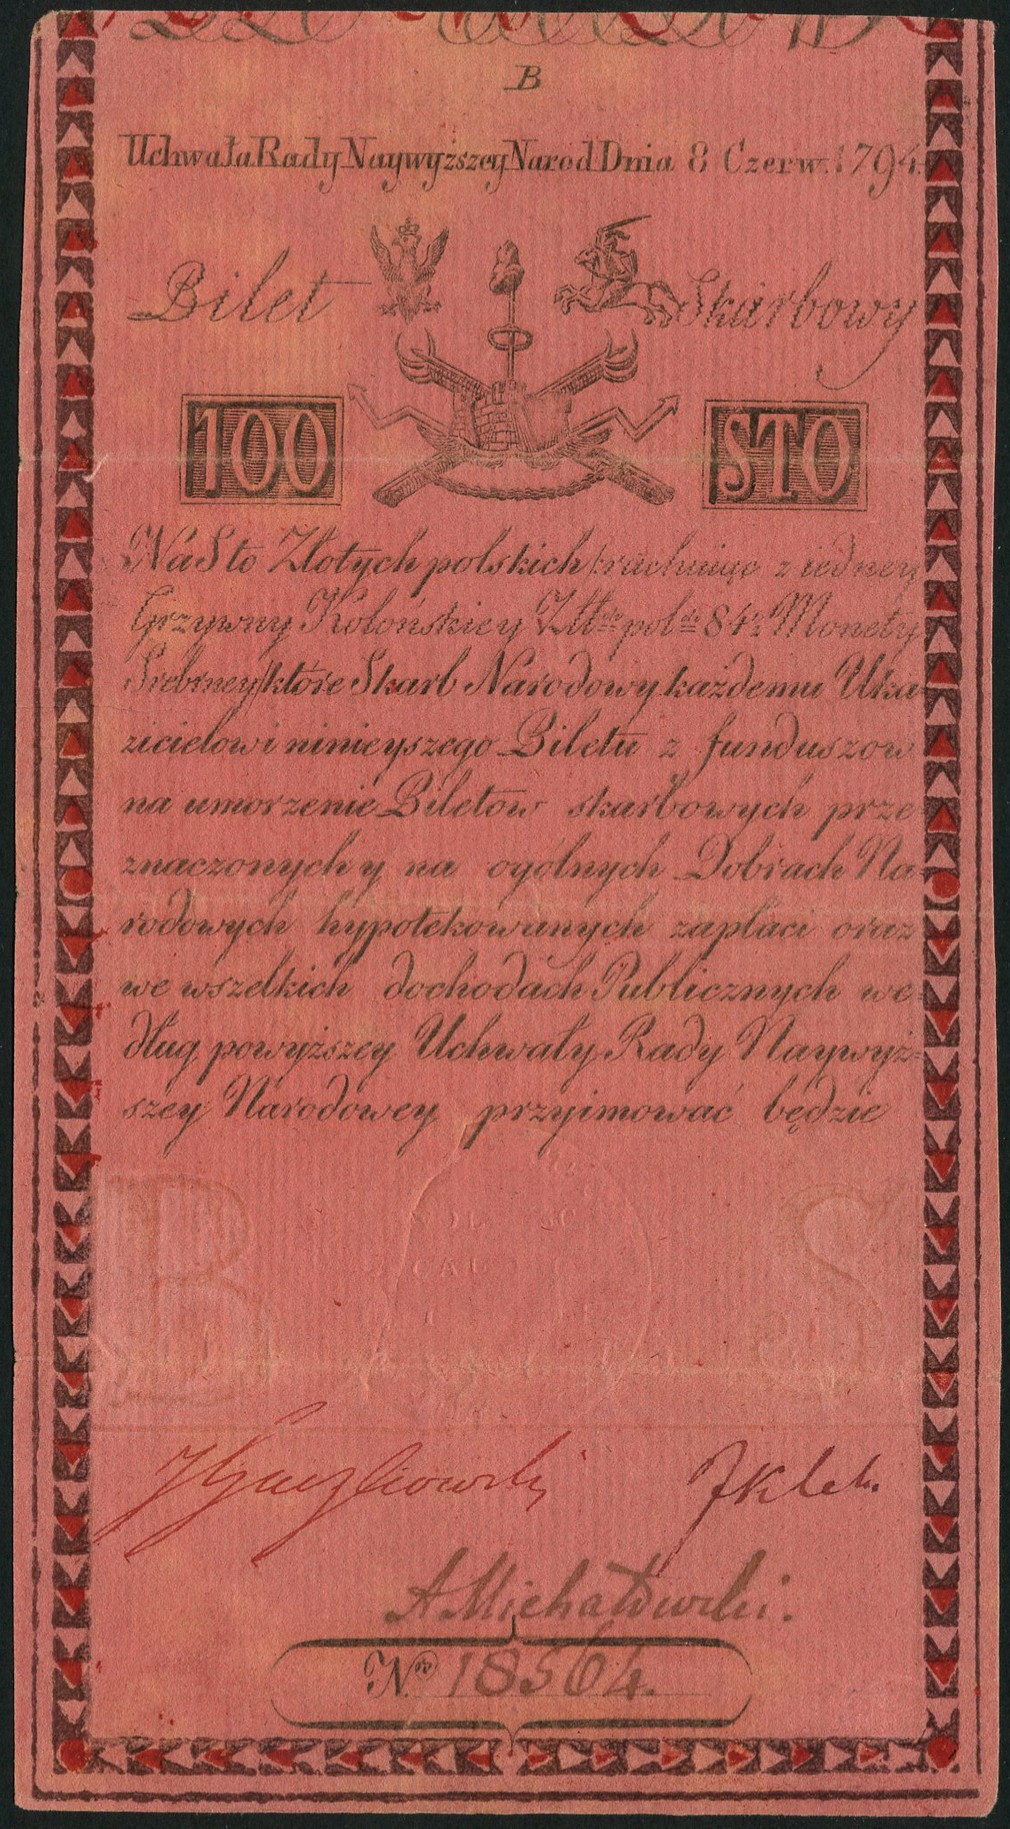 B
Uchwała Rady Naywyższey Narod Dnia 8 Czerw. 1794.
Bilet Skarbowy
100 STO
Na Sto Złotych polskich /:rachuiąc z iedney
Grzywny Kolońskiey Złł: pol: 84½ Monety
Srebrney/które Skarb Narodowy każdemu Uka-
zicielowi ninieyszego Biletu z funduszow
na umorzenie Biletow skarbowych prze-
znaczonych y na ogólnych Dobrach Na-
rodowych hypotekowanych zapłaci oraz
we wszelkich dochodach Publicznych we-
dług powyższey Uchwały Rady Naywyż-
szey Narodowey przyimować będzie
B S
A Michałowski.
Nro 18564.